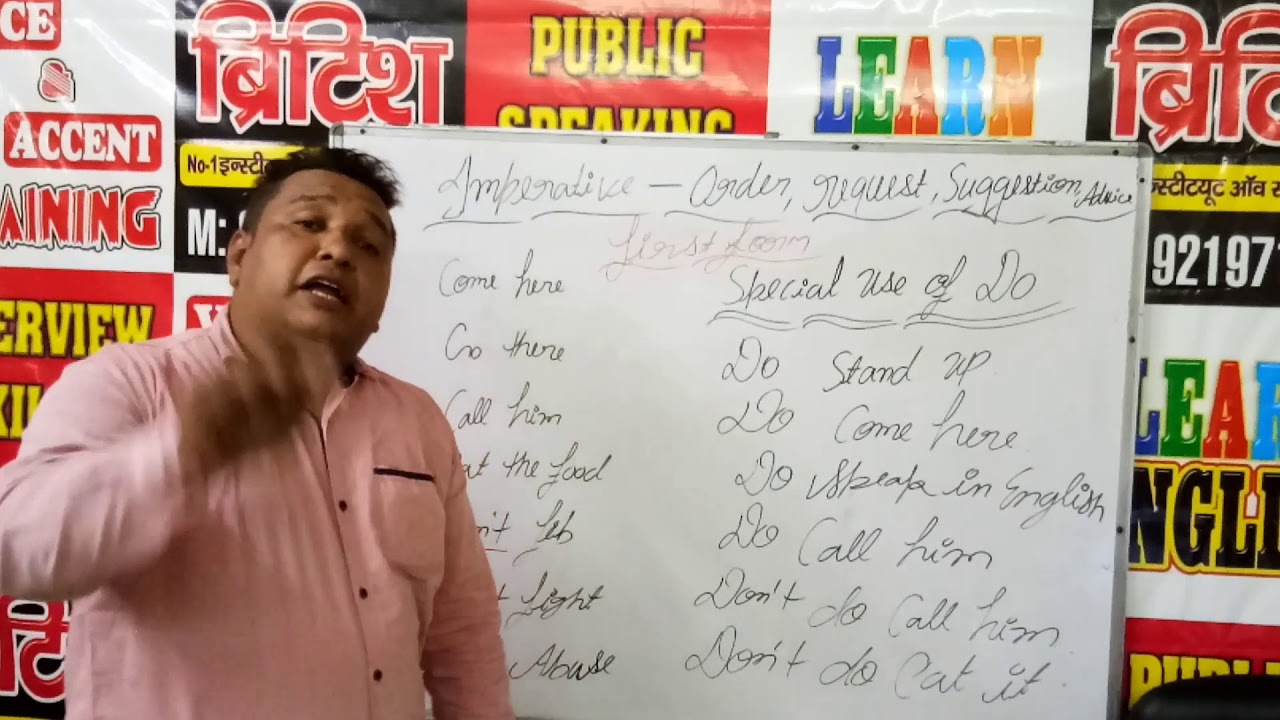 CE
ACCENT
AINING
ERVIEW
ब्रिटिश
No-1
M:
PUBLIC
SPEAKING
LEARN
ब्रिटि
स्टीटयूट ऑव
92197
LEAR
NGLI
PUBLI
Imperative – Order, request, Suggestion, Advice
first form
Come here
Go there
Call him
at the food
n't
fight
Abuse
Special use of Do
Do Stand up
Do Come here
Do speak in English
Do Call him
Don't do Call him
Don't do Eat it